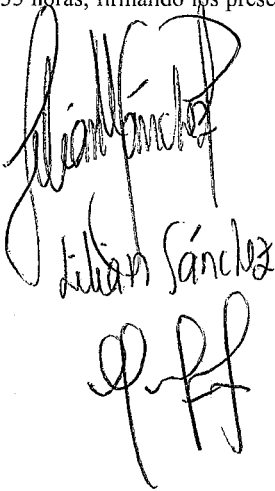 horas, firmando los prese
Lilian Sánchez
Lilian Sánchez